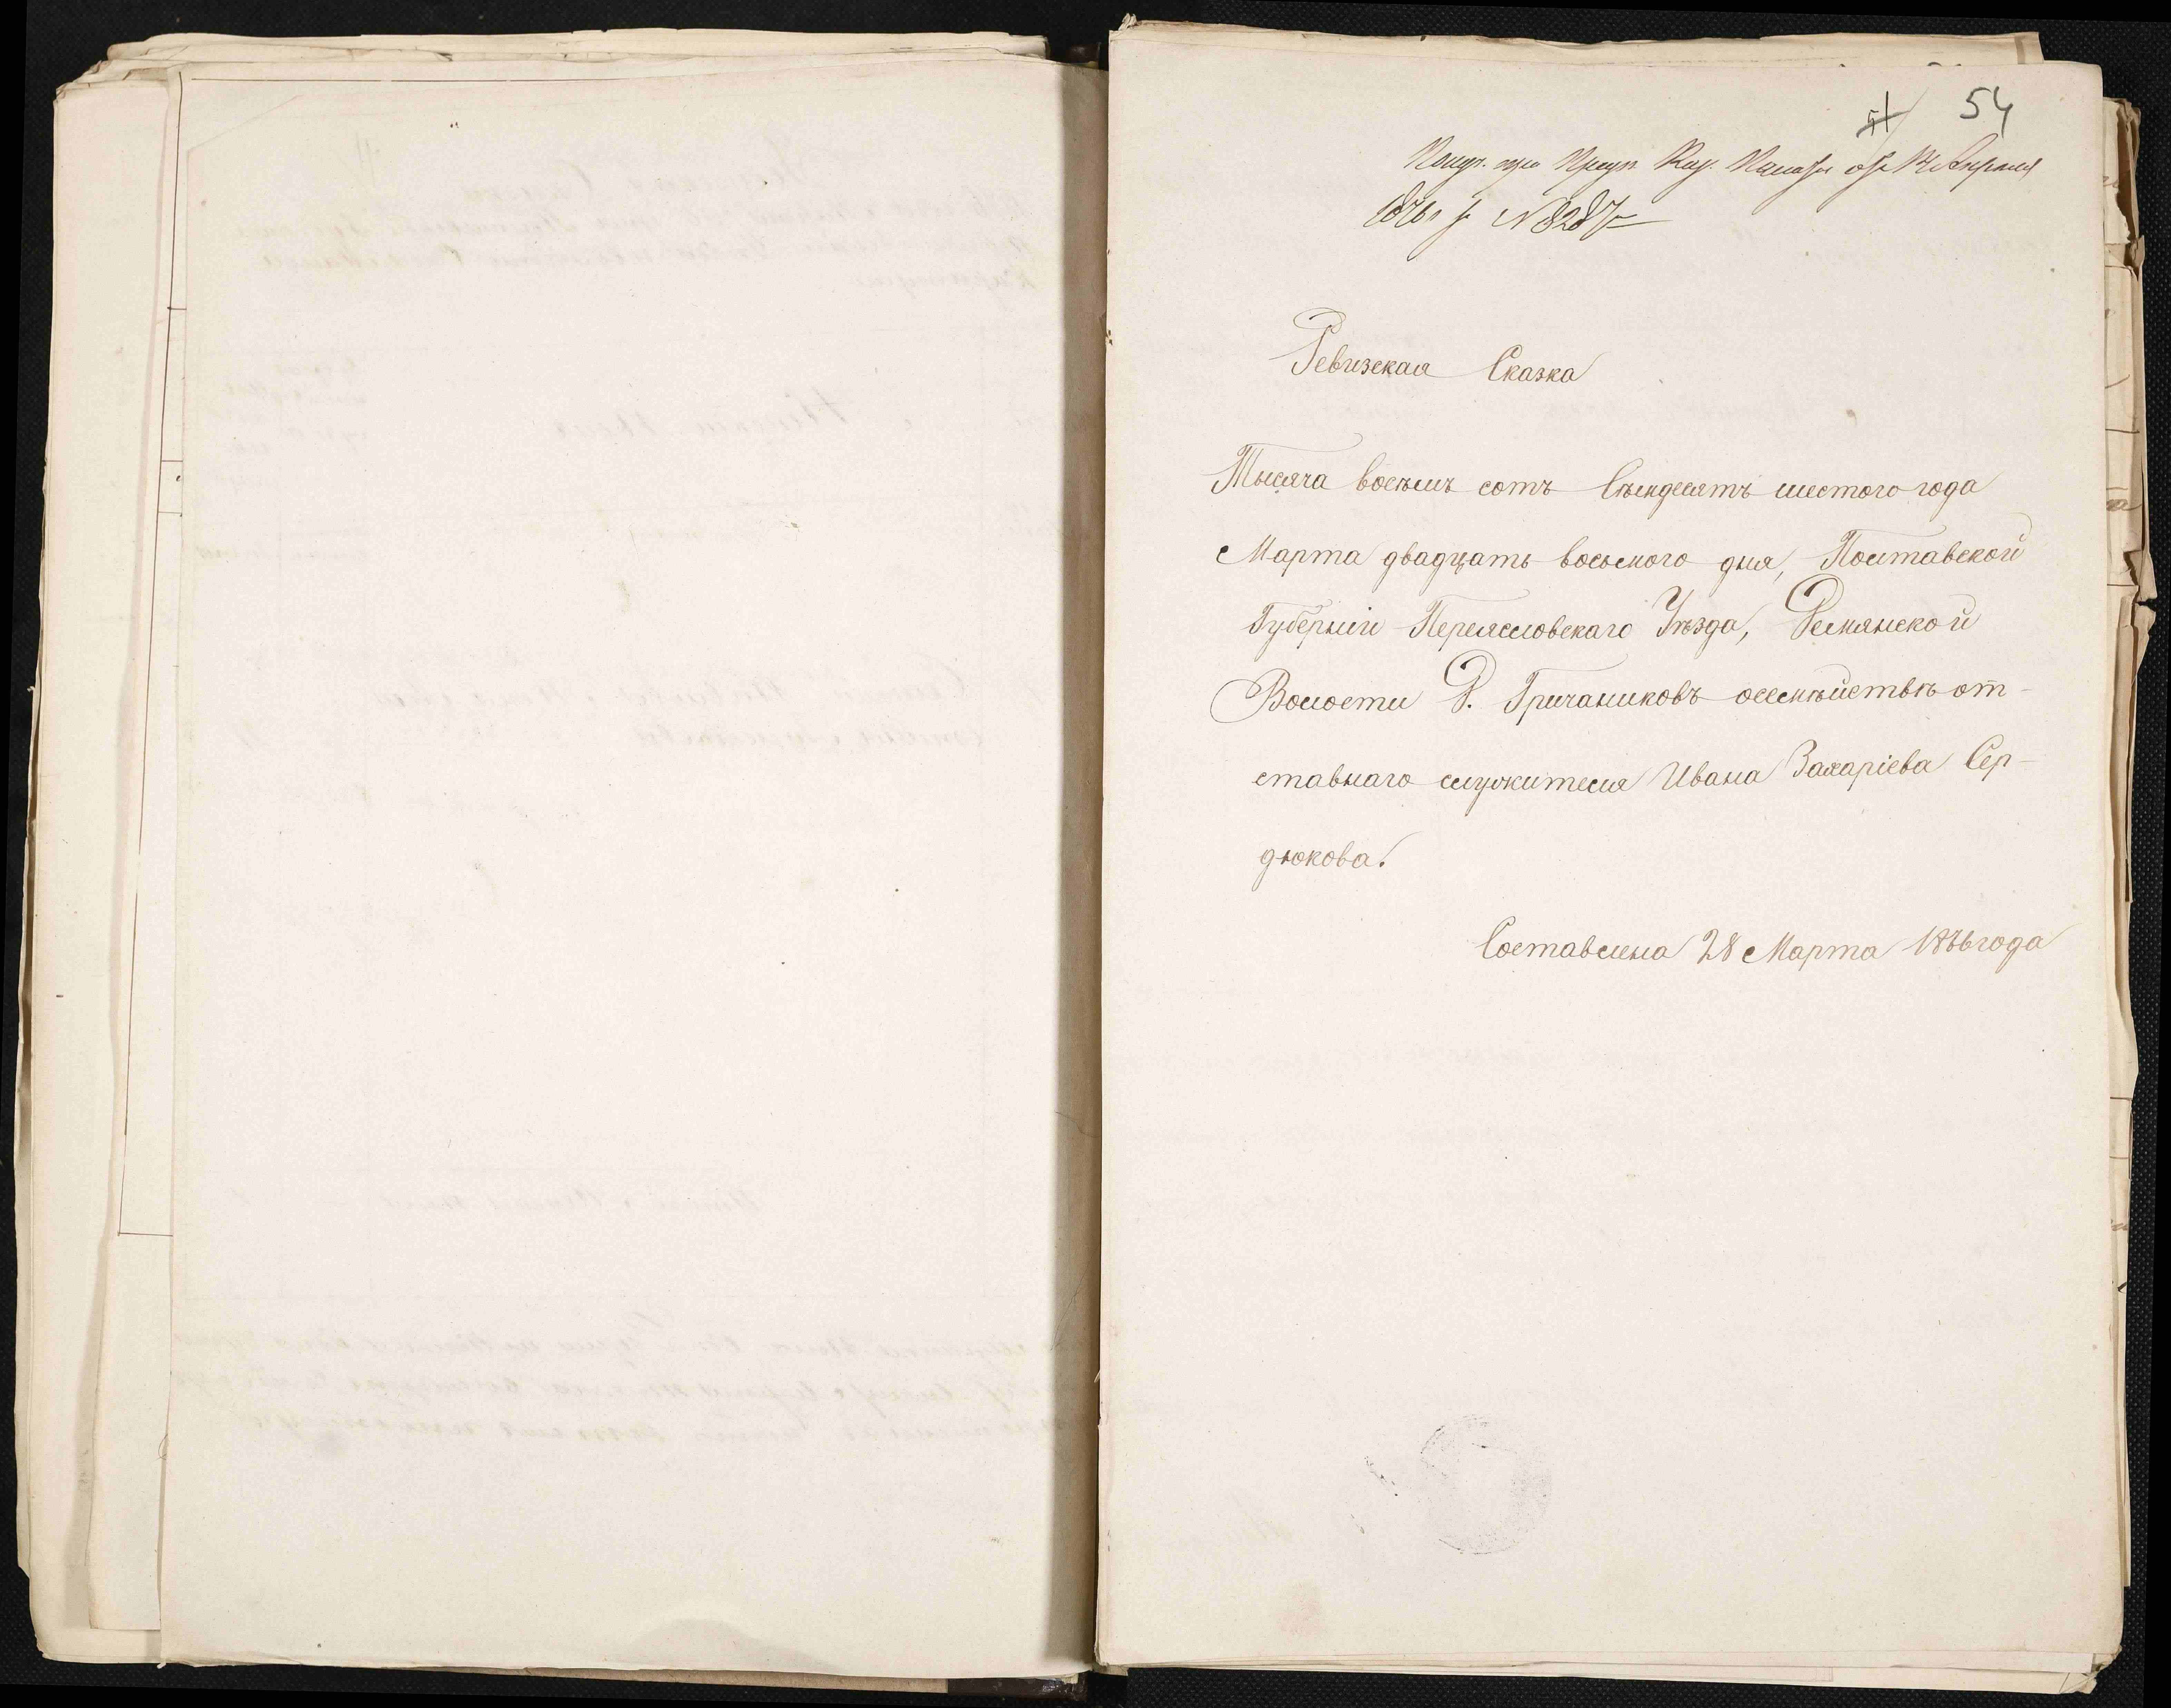 54
51
Получ. при Предп. Каз. Палаты отъ 14 Апреля
1876 г. N 8287
Ревизская Сказка
Тысяча восѣмъ сотъ Сѣмдесятъ шестого года
Марта двадцать восьмого дня, Полтавской
Губерніи Переясловскаго Уѣзда, Демянской
Волости Д. Гричаниковъ осемѣйствѣ от-
ставнаго служителя Ивана Захаріева Сер-
дюкова.
Составлена 28 Марта 1876 года